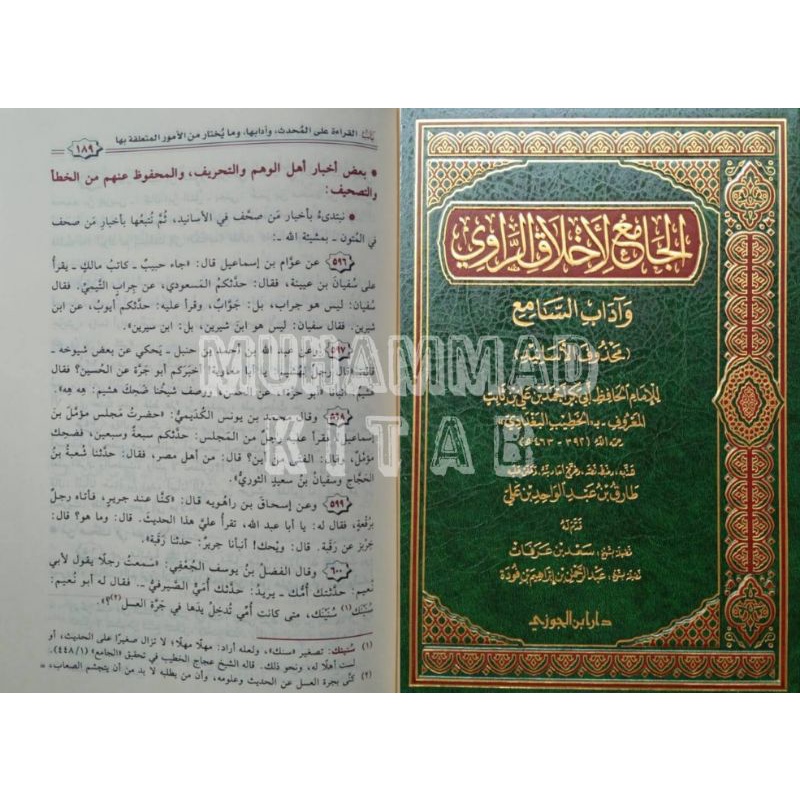 باب القراءة على المُحدث، وآدابها، وما يُختار من الأمور المتعلقة بها
١٨٩
• بعض أخبار أهل الوهم والتحريف، والمحفوظ عنهم من الخطأ
والتصحيف:
• نبتدىءُ بأخبار مَن صحَّف في الأسانيد، ثُمَّ نُتبعُها بأخبارِ مَن صحف
في المُتون ـ بمشيئة الله ـ:
٥٩٦ عن عوَّام بن إسماعيل قال: «جاء حبيبٌ ـ كاتبُ مالكٍ ـ يقرأُ
على سُفيانَ بن عيينة، فقال: حدَّثكمُ المَسعودي، عن جِرابِ التَّيْميِّ. فقال
سُفيانُ: ليس هو جراب، بل: جَوَّابٌ، وقرأ عليه: حدَّثكم أيوبُ، عن ابن
شيرين. فقال سفيان: ليس هو ابنَ شيرين، بل: ابن سيرين».
٥٩٧ وعن عبد الله بن أحمد بن حنبل ـ يَحكي عن بعض شيوخه ـ
قال: قال رجلٌ لهُشيم: يا أبا معاوية! أخبَركم أبو جرَّة عن الحُسين؟ فقال
هُشيم: أنبأنا أبو حُرَّة عن الحسن، ووصف شيخُنا ضَحِكَ هشيم: هِه هِه».
٥٩٨ وقال محمد بن يونس الكُدَيْميُّ: «حضرتُ مجلسَ مؤمَّل بن
إسماعيل، فقرأ عليه رجلٌ من المجلس: حدَّثكم سبعةٌ وسبعين، فضحِك
مؤمَّل، وقال للفتى: من أين؟ قال: من أهل مصر، فقال: حدَّثنا شُعبةُ بنُ
الحجَّاج وسُفيانُ بنُ سعيدٍ الثوريُّ».
٥٩٩ وعن إسحاقَ بن راهُويه قال: «كنَّا عند جريرٍ، فأتاه رجلٌ
برُقعةٍ، فقال له: يا أبا عبد الله، تقرأُ عليَّ هذا الحديثَ. قال: وما هو؟ قال:
خِرْبَز عن رَقَبة. قال: ويْحك! أنبأنا جريرٌ: حدَّثنا رَقَبة».
٦٠٠ وقال الفضلُ بنُ يوسف الجُعْفي: «سَمعتُ رجلًا يقول لأبي
نُعيم: حدَّثتْك أُمُّك ـ يريدُ: حدَّثك أُمَيٌّ الصَّيرفيُّ ـ. فقال له أبو نُعيم:
سُنَيْنَك(١) سُنَيْنَك، متى كانت أُمي تُدخِلُ يدَها في جَرَّة العسل(٢)؟».
(١) سُنَينك: تصغير «سنك»، ولعله أراد: مهلًا مهلًا؛ لا تزال صغيرًا على الحديث، أو
لست أهلًا له، ونحو ذلك. قاله الشيخ عجاج الخطيب في تحقيق «الجامع» (٤٤٨/١)
(٢) كنَّى بجرة العسل عن الحديث وعلومه، وأن من يطلبه لا بد من أن يتجشم الصعاب،
الجامع لأخلاق الراوي
وآداب السامع
(محذوف الأسانيد)
للإمام الحافظ أبي بكر أحمد بن علي بن ثابت
المعروف بـ«الخطيب البغدادي»
رحمه الله (٣٩٢ - ٤٦٣هـ)
طارق بن عبد الواحد بن علي
قدّم له
فضيلة الشيخ: سعد بن عرفات
فضيلة الشيخ: عبد الرحمن بن إبراهيم بن فودة
دار ابن الجوزي
MUHAMMAD
KITAB